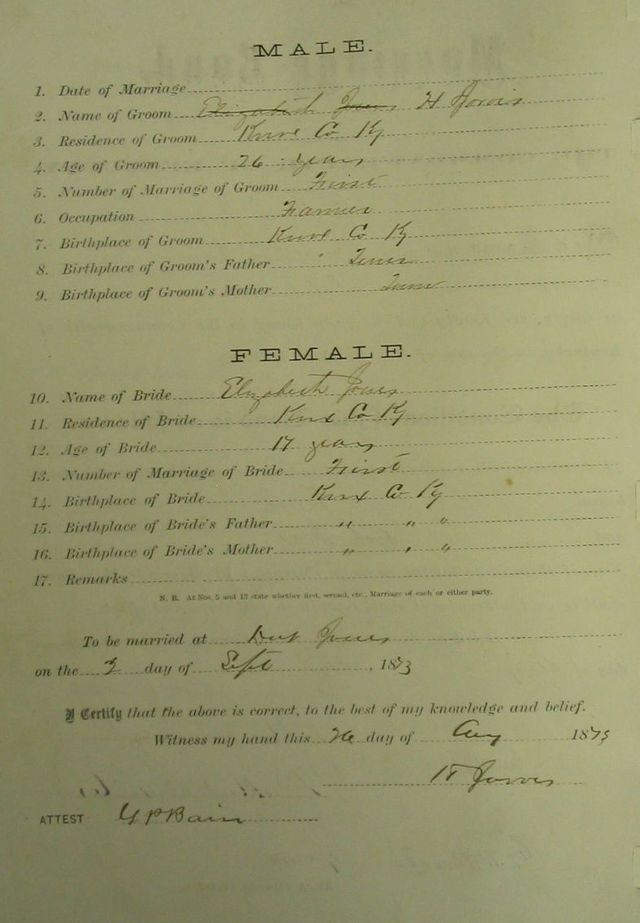 MALE.
1. Date of Marriage
2. Name of Groom Elizabeth Jones H Jarvis
3. Residence of Groom Knox Co Ky
4. Age of Groom 26 years
5. Number of Marriage of Groom First
6. Occupation Farmer
7. Birthplace of Groom Knox Co Ky
8. Birthplace of Groom's Father " Tenn
9. Birthplace of Groom's Mother Tenn
FEMALE.
10. Name of Bride Elizabeth Jones
11. Residence of Bride Knox Co Ky
12. Age of Bride 17 years
13. Number of Marriage of Bride First
14. Birthplace of Bride Knox Co Ky
15. Birthplace of Bride's Father " " "
16. Birthplace of Bride's Mother " " "
17. Remarks
N. B. At Nos. 5 and 13 state whether first, second, etc., Marriage of each or either party.
To be married at Jones
on the 2 day of Sept , 1873
I Certify that the above is correct, to the best of my knowledge and belief.
Witness my hand this 26 day of Aug 1873
H Jarvis
ATTEST G P Bain